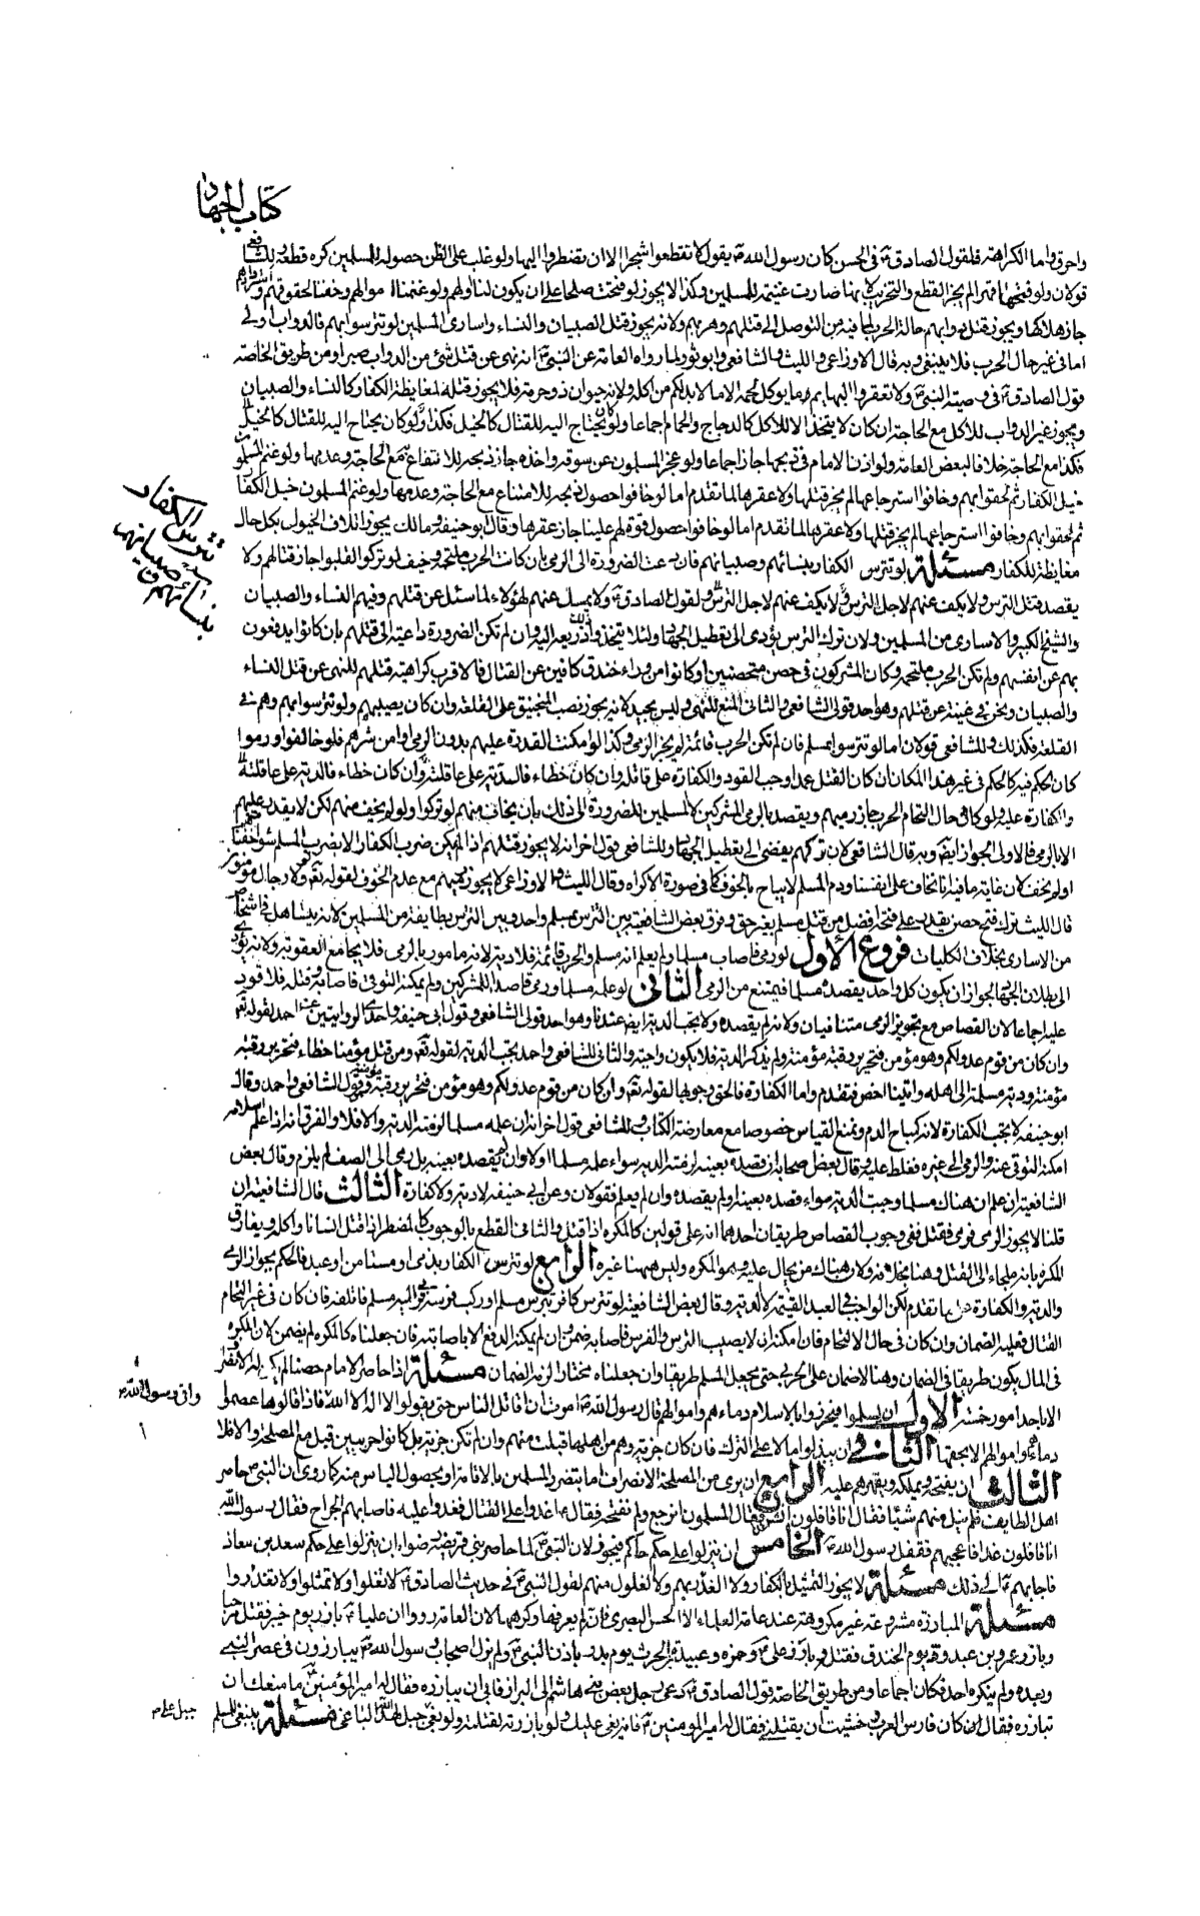 كتاب الجهاد
واحرق واما الكراهة فلقول الصادق ع في الحسن كان رسول الله ص يقول لا تقطعوا شجرا الا ان تضطروا اليها ولو غلب على الظن حصوله للمسلمين كره قطعه وللشافعي
قولان ولو فتحها قهرا لم يجز القطع والتخريب لانها صارت غنيمة للمسلمين وكذا لا يجوز لو فتحت صلحا على ان يكون لنا او لهم ولو غنمنا اموالهم وخفنا لحوقهم واستردادهم
جاز هلاكها ويجوز قتل دوابهم حالة الحرب لما فيه من التوصل الى قتلهم وهربهم ولانه يجوز قتل الصبيان والنساء واسارى المسلمين لو تترسوا بهم فالدواب اولى
اما في غير حال الحرب فلا ينبغي وبه قال الاوزاعي والليث والشافعي وابو ثور لما رواه العامة عن النبي ص انه نهى عن قتل شئ من الدواب صبرا ومن طريق الخاصة
قول الصادق ع في وصية النبي ص ولا تعقروا البهايم مما يؤكل لحمه الا ما لا بد لكم من اكله ولانه حيوان ذو حرمة فلا يجوز قتله لمغايظة الكفار كالنساء والصبيان
ويجوز عقر الدواب للاكل مع الحاجة ان كان لا يتخذ الا للاكل كالدجاج والحمام اجماعا ولو كان يحتاج اليه للقتال كالخيل
فكذا مع الحاجة خلافا لبعض العامة ولو اذن الامام في ذبحها جاز اجماعا ولو عجز المسلمون عن سوقه واخذه جاز ذبحه للانتفاع مع الحاجة وعدمها ولو غنم المسلمون
خيل الكفار ثم لحقوا بهم وخافوا استرجاعها لم يجز قتلها ولا عقرها لما تقدم اما لو خافوا حصول قوة لهم علينا جاز عقرها وقال ابو حنيفة ومالك يجوز اتلاف الخيول بكل حال
مغايظة للكفار مسئلة لو تترس الكفار بنسائهم وصبيانهم فان دعت الضرورة الى الرمي بان كانت الحرب ملتحمة وخيف لو تركوا لغلبوا جاز قتالهم ولا
يقصد قتل الترس ولا يكف عنهم لاجل الترس ولقول الصادق ع ولا يمسك عنهم لهؤلاء لما سئل عن قتلهم وفيهم النساء والصبيان
والشيخ الكبير والاسارى من المسلمين ولان ترك الترس يؤدي الى تعطيل الجهاد ولئلا يتخذوا ذلك ذريعة اليه وان لم تكن الضرورة داعية الى قتلهم بان كانوا يدفعون
بهم عن انفسهم ولم تكن الحرب ملتحمة وكان المشركون في حصن متحصنين او كانوا من وراء خندق كافين عن القتال فالاقرب كراهية قتلهم للنهي عن قتل النساء
والصبيان ونحن في غنية عن قتلهم وهو احد قولي الشافعي والثاني المنع للنهي وليس بجيد لانه يجوز نصب المنجنيق على القلعة وان كان يصيبهم ولو تترسوا بهم وهم في
القلعة فكذلك وللشافعي قولان اما لو تترسوا بمسلم فان لم تكن الحرب قائمة لم يجز الرمي وكذا لو امكنت القدرة عليهم بدون الرمي او امن شرهم فلو خالفوا ورموا
كان الحكم فيه كالحكم في غير هذا المكان ان كان القتل عمدا وجب القود والكفارة على قاتله وان كان خطاء فالدية على عاقلته
والكفارة عليه ولو كان في حال التحام الحرب جاز رميهم ويقصد بالرمي المشركين لا المسلمين للضرورة الى ذلك بان يخاف منهم لو تركوا ولو لم يخف منهم لكن لا يقدر عليهم
الا بالرمي فالاولى الجواز ايضا وبه قال الشافعي لان تركهم يفضي الى تعطيل الجهاد وللشافعي قول اخر انه لا يجوز قتلهم اذا لم يمكن ضرب الكفار الا بضرب المسلم سواء خفناهم
او لم نخف لان غاية ما فيه ان نخاف على انفسنا ودم المسلم لا يباح بالخوف كما في صورة الاكراه وقال الليث والاوزاعي لا يجوز رميهم مع عدم الخوف لقوله تع ولولا رجال مؤمنون
قال الليث ترك فتح حصن يقدر على فتحه افضل من قتل مسلم بغير حق وفرق بعض الشافعية بين الترس بمسلم واحد وبين الترس بطايفة من المسلمين لانه يتساهل في اشخاص
من الاسارى بخلاف الكليات فروع الاول لو رمى فاصاب مسلما ولم يعلم انه مسلم والحرب قائمة فلا دية لانه مامور بالرمي فلا يجامع العقوبة ولانه يؤدي
الى بطلان الجهاد لجواز ان يكون كل واحد يقصده مسلما فيمتنع من الرمي الثاني لو علمه مسلما ورمى قاصدا للمشركين ولم يمكنه التوقي فاصابه وقتله فلا قود
عليه اجماعا لان القصاص مع تجويز الرمي متنافيان ولانه لم يقصده ولا تجب الدية ايضا عندنا وهو احد قولي الشافعي وقول ابي حنيفة واحدى الروايتين عن احمد لقوله تعالى
وان كان من قوم عدو لكم وهو مؤمن فتحرير رقبة مؤمنة ولم يذكر الدية فلا يكون واجبة والثاني للشافعي واحمد تجب الدية لقوله تع ومن قتل مؤمنا خطاء فتحرير رقبة
مؤمنة ودية مسلمة الى اهله وايتنا اخص فتقدم واما الكفارة فالحق وجوبها لقوله تع وان كان من قوم عدو لكم وهو مؤمن فتحرير رقبة مؤمنة وهو قول الشافعي واحمد وقال
ابو حنيفة لا تجب الكفارة لانه كمباح الدم ونمنع القياس خصوصا مع معارضة الكتاب وللشافعي قول اخر انه ان علمه مسلما لزمته الدية والا فلا والفرق انه اذا علم اسلامه
امكنه التوقي عنه والرمي الى غيره فغلظ عليه وقال بعض اصحابه ان قصده بعينه لزمته الدية سواء علمه مسلما او لا وان لم يقصده بعينه بل رمى الى الصف لم يلزم وقال بعض
الشافعية ان علم ان هناك مسلما وجبت الدية سواء قصده بعينه او لم يقصده وان لم يعلم فقولان وعن ابي حنيفة لا دية ولا كفارة الثالث قال الشافعية ان
قلنا لا يجوز الرمي فرمى فقتل ففي وجوب القصاص طريقان احدهما انه على قولين كالمكره اذا قتل والثاني القطع بالوجوب كالمضطر اذا قتل انسانا واكله ويفارق
المكره بانه ملجاء الى القتل وهنا بخلافه ولان هناك من يحال عليه وهو المكره وليس ههنا غيره الرابع لو تترس الكفار بذمي او مستامن او عبد فالحكم بجواز الرمي
والدية والكفارة كما تقدم لكن الواجب في العبد القيمة لا الدية وقال بعض الشافعية لو تترس كافر بترس مسلم او ركب فرسه فرماه مسلم فاتلفه فان كان في غير التحام
القتال فعليه الضمان وان كان في حال الالتحام فان امكنه ان لا يصيب الترس والفرس فاصابه ضمن وان لم يمكنه الدفع الا باصابته فان جعلناه كالمكره لم يضمن لان المكره
في المال يكون طريقا في الضمان وهنا لا ضمان على الحربي حتى يجعل المسلم طريقا وان جعلناه مختارا لزمه الضمان مسئلة اذا حاصر الامام حصنا لم يكن له الانصراف
الا باحد امور خمسة الاول ان يسلموا فيحرزوا بالاسلام دماءهم واموالهم قال رسول الله ص امرت ان اقاتل الناس حتى يقولوا لا اله الا الله فاذا قالوها عصموا
دماءهم واموالهم الا بحقها الثاني ان يبذلوا مالا على الترك فان كان جزية وهم من اهلها قبلت منهم وان لم تكن جزية بل كانوا حربيين قبل مع المصلحة والا فلا
الثالث ان يفتحه ويملكه ويقهرهم عليه الرابع ان يرى من المصلحة الانصراف اما بتضرر المسلمين بالاقامة او بحصول الياس منه كما روي ان النبي ص حاصر
اهل الطايف فلم ينل منهم شيئا فقال انا قافلون انشاء الله فقال المسلمون انرجع ولم نفتحه فقال ع اغدوا على القتال فغدوا عليه فاصابهم الجراح فقال رسول الله
انا قافلون غدا فاعجبهم فقفل رسول الله ص الخامس ان ينزلوا على حكم حاكم فيجوز لان النبي ص لما حاصر بني قريظة رضوا بان ينزلوا على حكم سعد بن معاذ
فاجابهم الى ذلك مسئلة لا يجوز التمثيل بالكفار ولا الغدر بهم ولا الغلول منهم لقول النبي ص في حديث الصادق ع لا تغلوا ولا تمثلوا ولا تغدروا
مسئلة المبارزة مشروعة غير مكروهة عند عامة العلماء الا الحسن البصري فانه لم يعرفها وكرهها لان العامة رووا ان عليا ع بارز يوم خيبر فقتل مرحبا
وبارز عمرو بن عبد ود يوم الخندق فقتله وبارز علي ع وحمزة وعبيدة بن الحرث يوم بدر باذن النبي ص ولم يزل اصحاب رسول الله ص يبارزون في عصر النبي
وبعده ولم ينكره احد فكان اجماعا ومن طريق الخاصة قول الصادق ع دعى رجل بعض بني هاشم الى البراز فابى ان يبارزه فقال له امير المؤمنين ع ما منعك ان
تبارزه فقال كان فارس العرب وخشيت ان يقتلني فقال له امير المؤمنين ع فانه بغى عليك ولو بارزته لقتلته ولو بغى جبل على جبل لهد الله الباغي مسئلة ينبغي للمسلم
تترس الكفار
بنسائهم وصبيانهم
واني رسول الله ص
جبل على